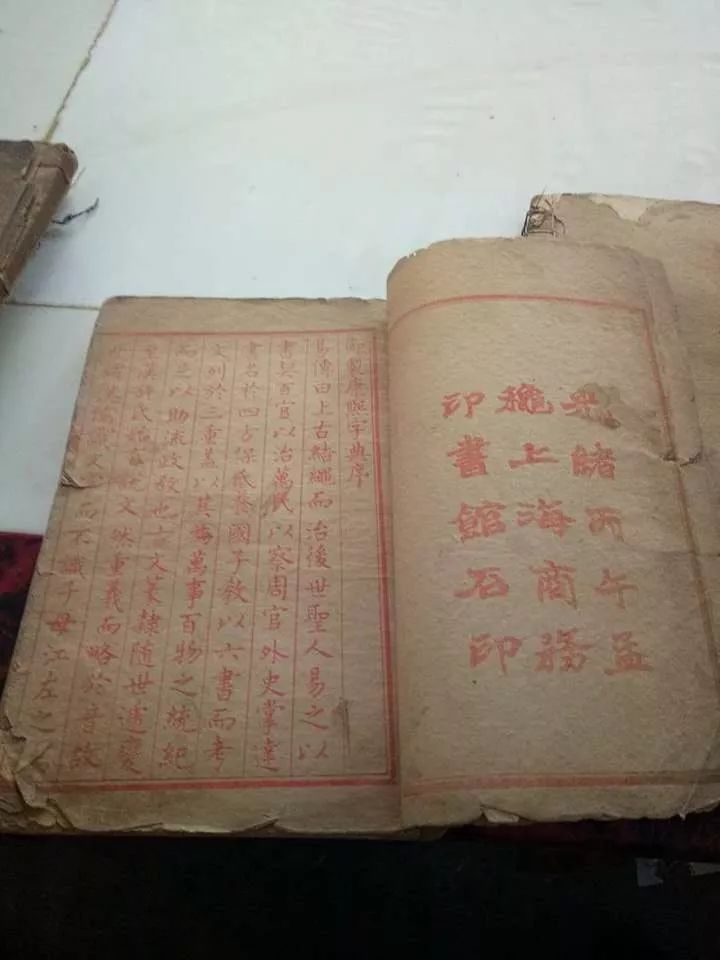 緒丙午孟
穐上海商務
印書館石印
御製康熙字典序
易傳曰上古結繩而治後世聖人易之以
書契百官以治萬民以察周官外史掌達
書名於四方保氏養國子教以六書而考
文列於三重蓋以其為萬事百物之統紀
而足以助流政教也古文篆隸隨世遞變
至漢許氏始有說文然重義而略於音故
世謂漢儒識文而不識子母江左之